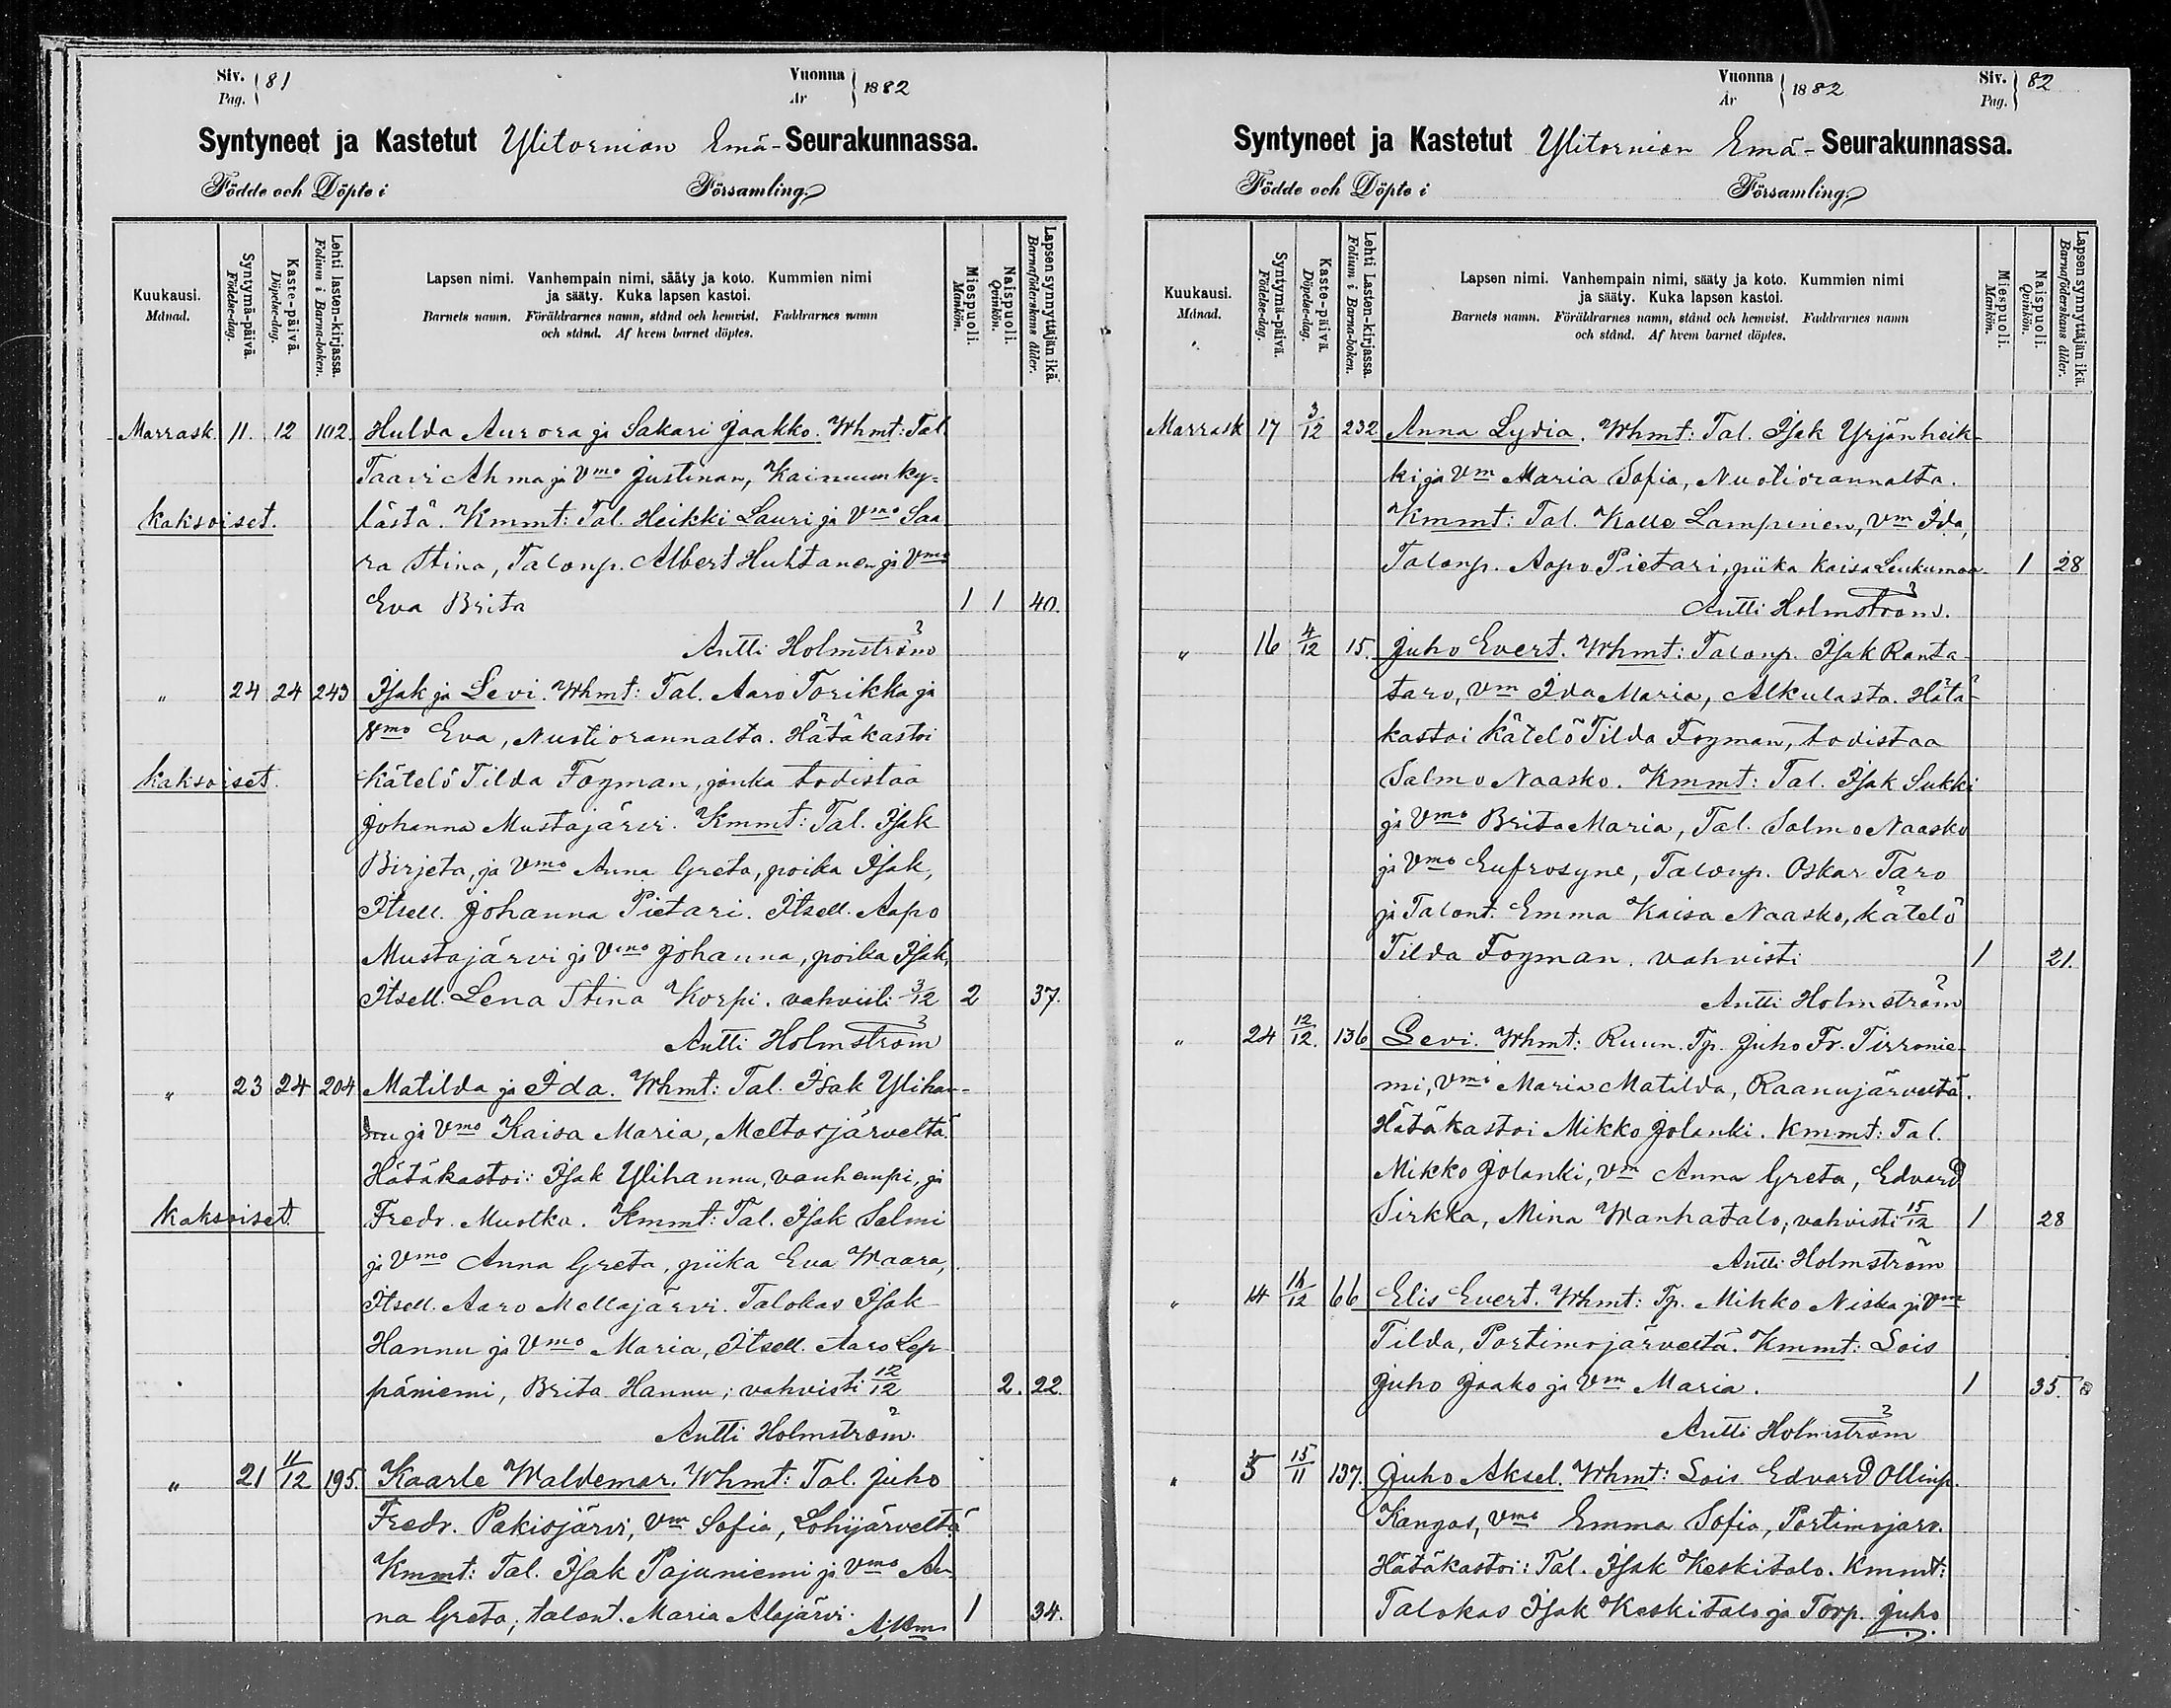 Siv. Pag. 81
Vuonna År 1882
Syntyneet ja Kastetut Ylitornion Emä-Seurakunnassa.
Födde och Döpte i Församling
Kuukausi. Månad.
Syntymä-päivä. Födelse-dag.
Kaste-päivä. Döpelse-dag.
Lehti lasten-kirjassa. Folium i Barna-boken.
Lapsen nimi. Vanhempain nimi, sääty ja koto. Kummien nimi
ja sääty. Kuka lapsen kastoi.
Barnets namn. Föräldrarnes namn, stånd och hemvist. Faddrarnes namn
och stånd. Af hvem barnet döptes.
Miespuoli. Mankön.
Naispuoli. Qvinkön.
Lapsen synnyttäjän ikä. Barnaföderskans ålder.
Marrask. 11. 12 102. Hulda Aurora ja Sakari Jaakko. Whmt: Tal.
Taavi Ahma ja Vmo Justinan, Kainuunky-
Kaksoiset. lästä. Kmmt: Tal. Heikki Lauri ja Vmo Saa
ra Stina, Talonp. Albert Huhtanen ja Vmo
Eva Brita 1 1 40.
Antti Holmström
" 24 24 243 Isak ja Levi. Whmt: Tal. Aaro Torikka ja
Vmo Eva, Nuotiorannalta. Hätäkastoi
Kaksoiset. kätelö Tilda Fogman, jonka todistaa
Johanna Mustajärvi. Kmmt: Tal. Isak
Birjeta, ja Vmo Anna Greta, poika Isak,
Itsell. Johanna Pietari. Itsell. Aapo
Mustajärvi ja Vmo Johanna, poika Isak,
Itsell. Lena Stina Korpi. vahvisti 3/12 2 37.
Antti Holmström
" 23 24 204 Matilda ja Ida. Whmt: Tal. Isak Ylihan-
nu ja Vmo Kaisa Maria, Meltosjärveltä.
Hätäkastoi: Isak Ylihannu, vanhempi, ja
Kaksoiset. Fredr. Muotka. Kmmt: Tal. Isak Salmi
ja Vmo Anna Greta, piika Eva Waara,
Itsell. Aaro Mellajärvi. Talokas Isak
Hannu ja Vmo Maria, Itsell. Aaro Lep
päniemi, Brita Hannu; vahvisti 12/12 2. 22.
Antti Holmström
" 21 11/12 195. Kaarle Waldemar. Whmt: Tal. Juho
Fredr. Pakisjärvi, Vm Sofia, Lohijärveltä
Kmmt: Tal. Isak Pajuniemi ja Vmo An
na Greta; talont. Maria Alajärvi. 1 34.
Vuonna År 1882
Siv. Pag. 82
Syntyneet ja Kastetut Ylitornion Emä-Seurakunnassa.
Födde och Döpte i Församling
Kuukausi. Månad.
Syntymä-päivä. Födelse-dag.
Kaste-päivä. Döpelse-dag.
Lehti Lasten-kirjassa. Folium i Barna-boken.
Lapsen nimi. Vanhempain nimi, sääty ja koto. Kummien nimi
ja sääty. Kuka lapsen kastoi.
Barnets namn. Föräldrarnes namn, stånd och hemvist. Faddrarnes namn
och stånd. Af hvem barnet döptes.
Miespuoli. Mankön.
Naispuoli. Qvinkön.
Lapsen synnyttäjän ikä. Barnaföderskans ålder.
Marrask 17 3/12 232 Anna Lydia. Whmt: Tal. Isak Yrjänheik-
ki, ja Vm Maria Sofia, Nuotiorannalta.
Kmmt: Tal. Kalle Lampinen, Vm Ida,
Talonp. Aapo Pietari, piika Kaisa Leukumaa. 1 28
Antti Holmström.
" 16 4/12 15. Juho Evert. Whmt: Talonp. Isak Ranta-
taro, Vm Ida Maria, Alkulasta. Hätä-
kastoi kätelö Tilda Fogman, todistaa
Salmo Naasko. Kmmt: Tal. Isak Sukki
ja Vmo Brita Maria, Tal. Salmo Naasko
ja Vmo Eufrosyne, Talonp. Oskar Taro
ja Talont. Emma Kaisa Naasko, kätelö
Tilda Fogman. vahvisti 1 21.
Antti Holmström
" 24 12/12. 136 Levi. Whmt: Ruun. Tp. Juho Fr. Tirronie-
mi, Vmo Maria Matilda, Raanujärveltä.
Hätäkastoi Mikko Jolanki. Kmmt: Tal.
Mikko Jolanki, Vm Anna Greta, Edvard
Sirkka, Mina Wanhatalo; vahvisti 15/12 1 28
Antti Holmström
" 14 16/12 66 Elis Evert. Whmt: Tp. Mikko Niska ja Vm
Tilda, Portimojärveltä. Kmmt: Lois
Juho Jaako ja Vm Maria. 1 35.
Antti Holmström
" 5 15/11 137. Juho Aksel. Whmt: Lois Edvard Ollinp.
Kangas, Vmo Emma Sofia, Portimojärv.
Hätäkastoi: Tal. Isak Keskitalo. Kmmt:
Talokas Isak Keskitalo ja Torp. Juho